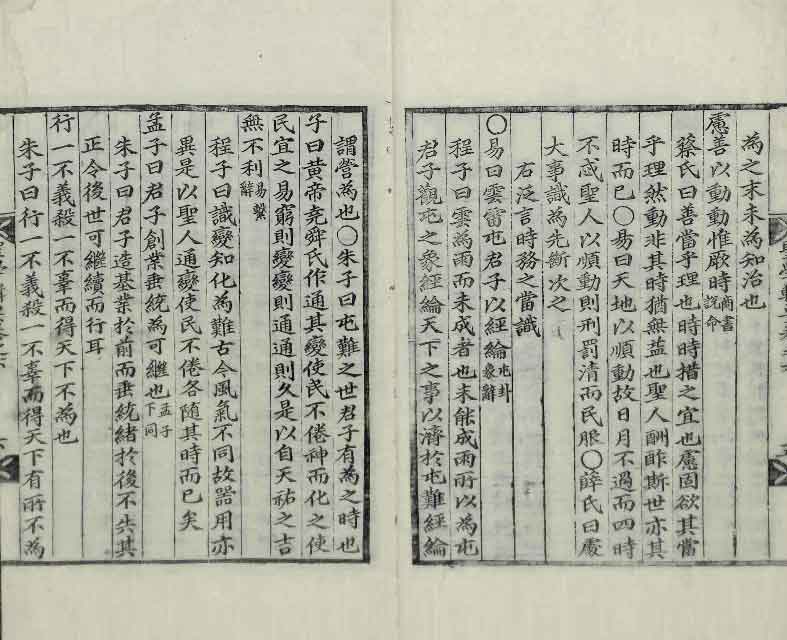 為之末未為知治也
慮善以動動惟厥時商書說命
蔡氏曰善當乎理也時時措之宜也慮固欲其當
乎理然動非其時猶無益也聖人酬酢斯世亦其
時而已〇易曰天地以順動故日月不過而四時
不忒聖人以順動則刑罰清而民服〇薛氏曰處
大事識為先斷次之
右泛言時務之當識
〇易曰雲雷屯君子以經綸屯卦象辭
程子曰雲為雨而未成者也未能成雨所以為屯
君子觀屯之象經綸天下之事以濟於屯難經綸
謂營為也〇朱子曰屯難之世君子有為之時也
子曰黃帝堯舜氏作通其變使民不倦神而化之使
民宜之易窮則變變則通通則久是以自天祐之吉
無不利易繫辭
程子曰識變知化為難古今風氣不同故器用亦
異是以聖人通變使民不倦各隨其時而已矣
孟子曰君子創業垂統為可繼也孟子下同
朱子曰君子造基業於前而垂統緒於後不失其
正令後世可繼續而行耳
行一不義殺一不辜而得天下不為也
朱子曰行一不義殺一不辜而得天下有所不為